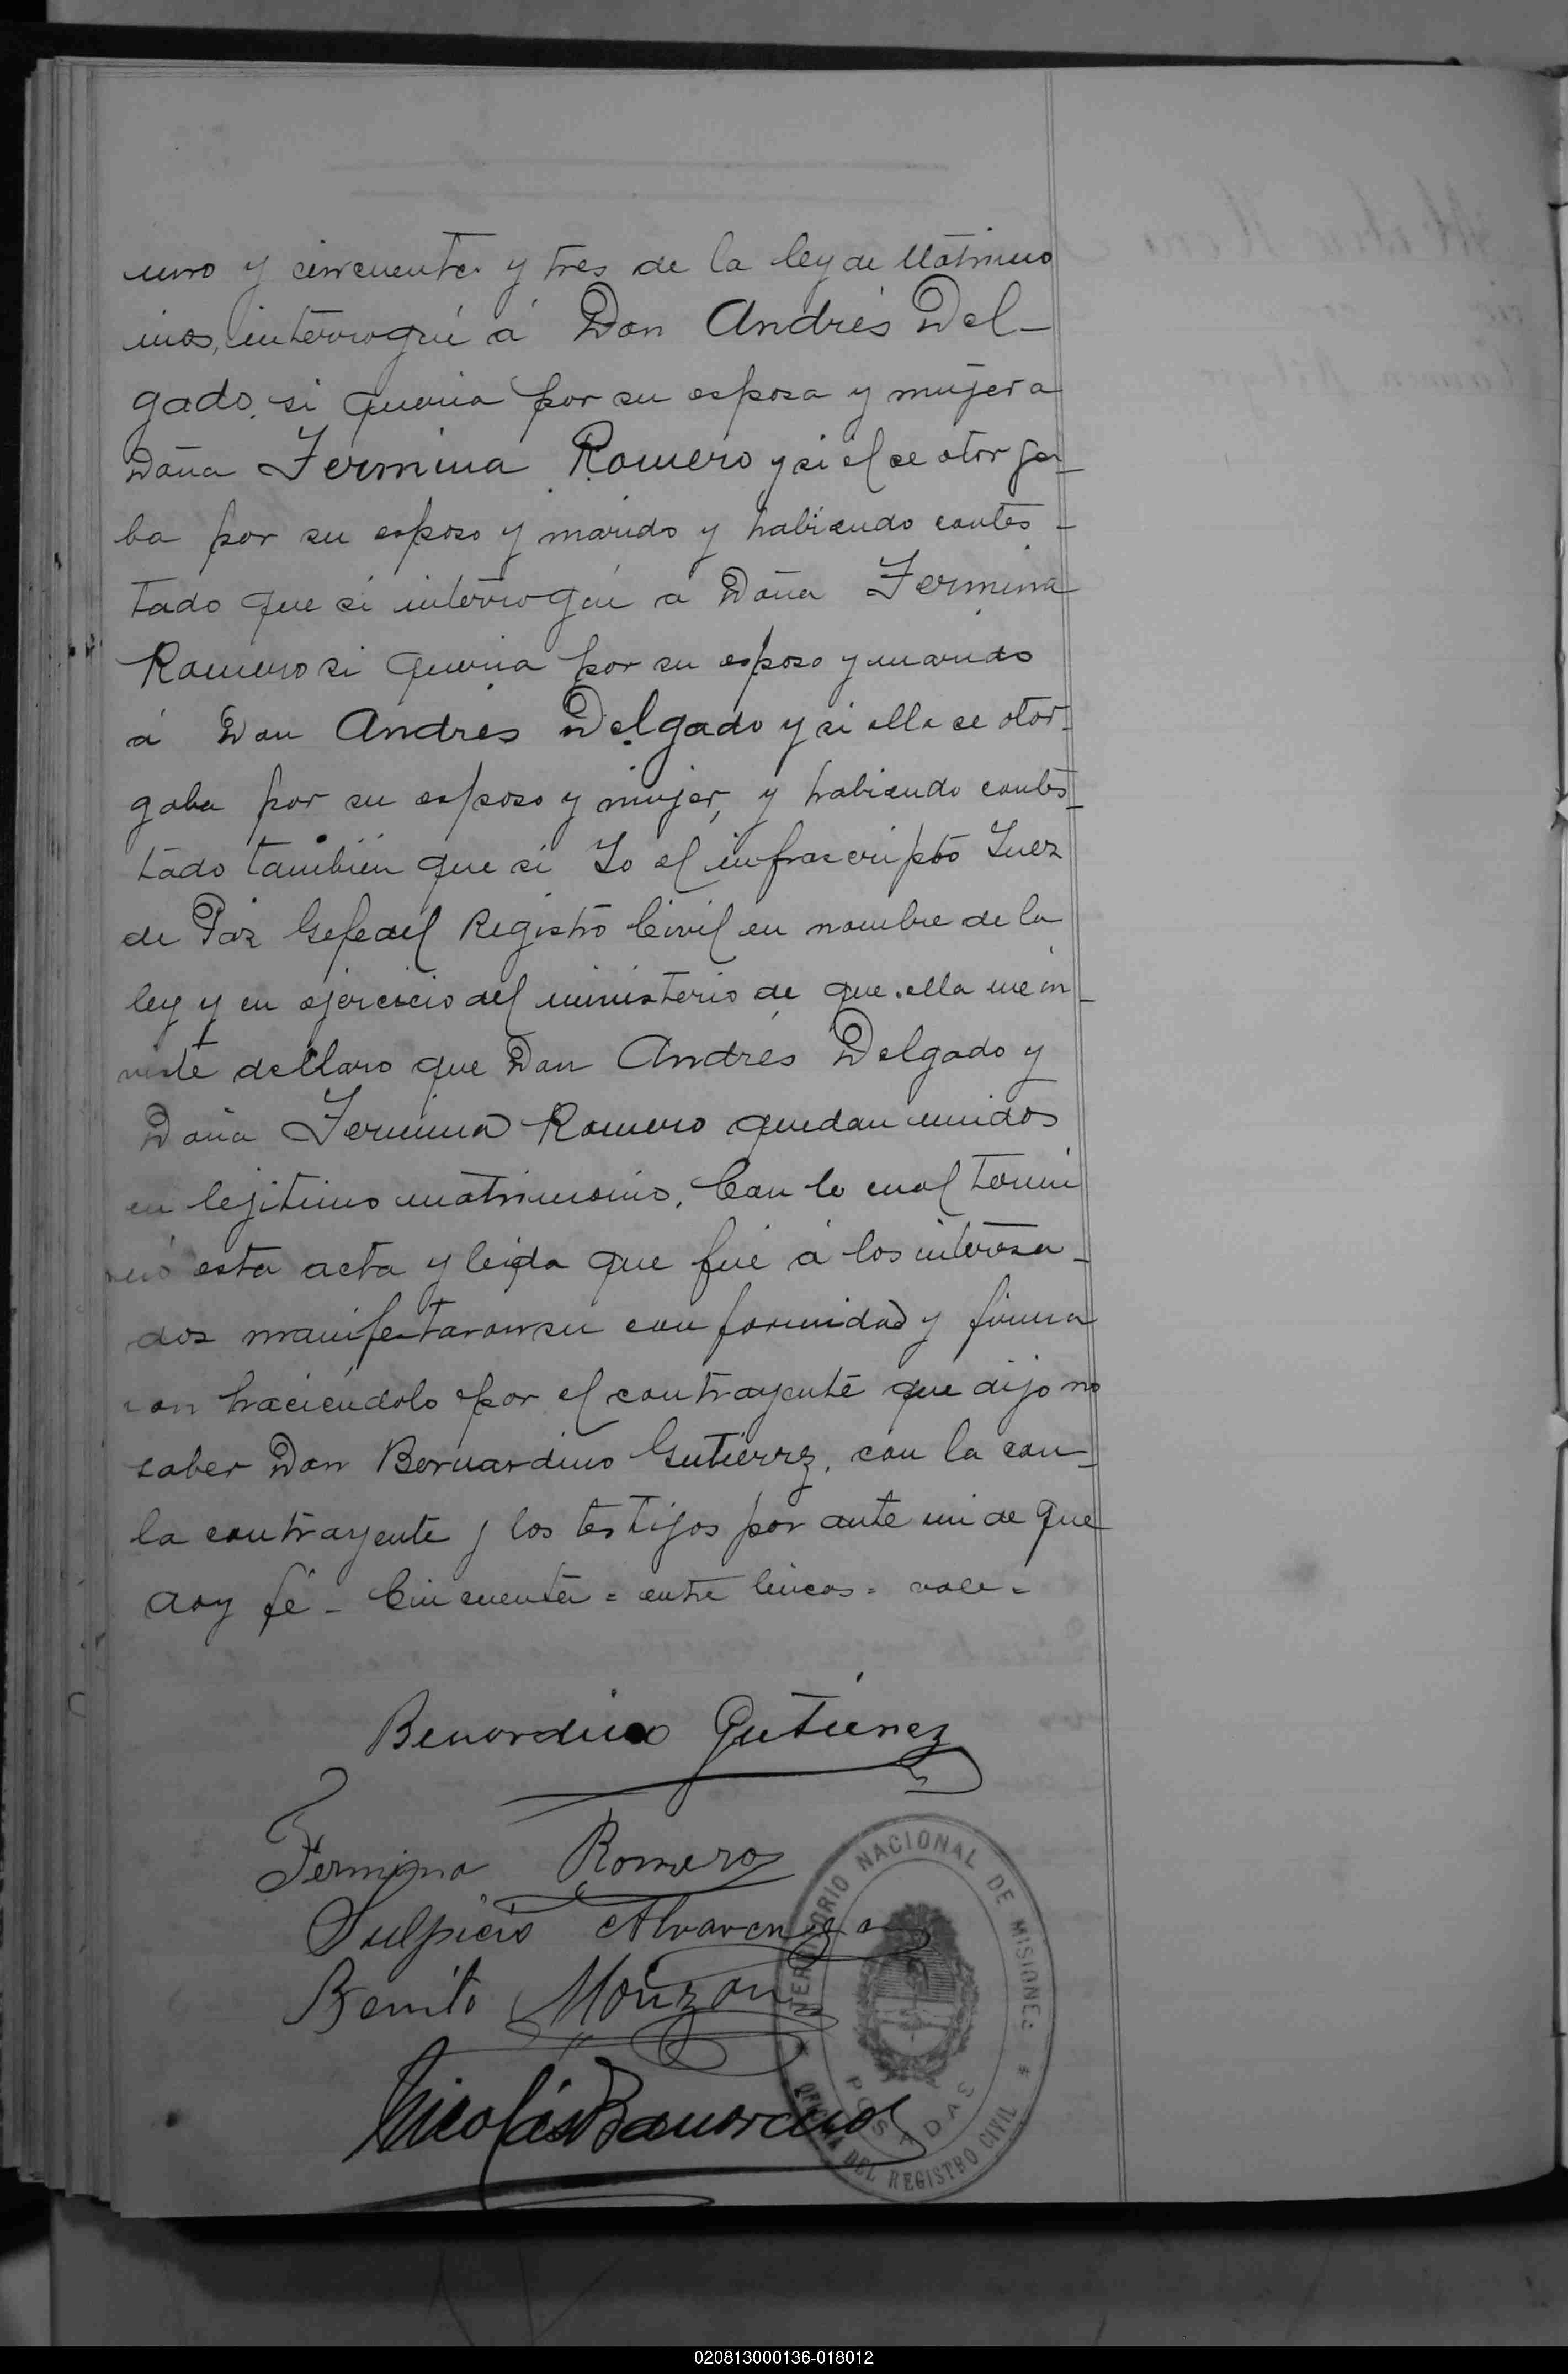 uno y cincuenta y tres de la ley de Matrimo
nios, interrogué á Don Andrés Del-
gado, si queria por su esposa y mujer a
Doña Fermina Romero y si el se otorga-
ba por su esposo y marido y habiendo contes-
tado que si interrogué a Doña Fermina
Romero si queria por su esposo y marido
á Don Andrés Delgado y si ella se otor-
gaba por su esposo y mujer, y habiendo contes-
tado también que si Yo el infrascripto Juez
de Paz Gefe del Registro Civil en nombre de la
ley y en ejercicio del ministerio de que ella me in-
viste declaro que Don Andrés Delgado y
Doña Fermina Romero quedan unidos
en lejitimo matrimonio. Con lo cual termi
nó esta acta y leida que fué á los interesa-
dos manifestaron su conformidad y firma
ron haciéndolo por el contrayente que dijo no
saber Don Bernardino Gutierrz, con la con-
la contrayente y los testijos por ante mi de que
doy fé - Cincuenta = entre lineas = vale -
Benordino Gutierrez
Fermina Romero
Sulpicio Alvarenga
Benito Monzon
Nicolás
TERRITORIO NACIONAL DE MISIONES
POSADAS
OFICINA DEL REGISTRO CIVIL
020813000136-018012